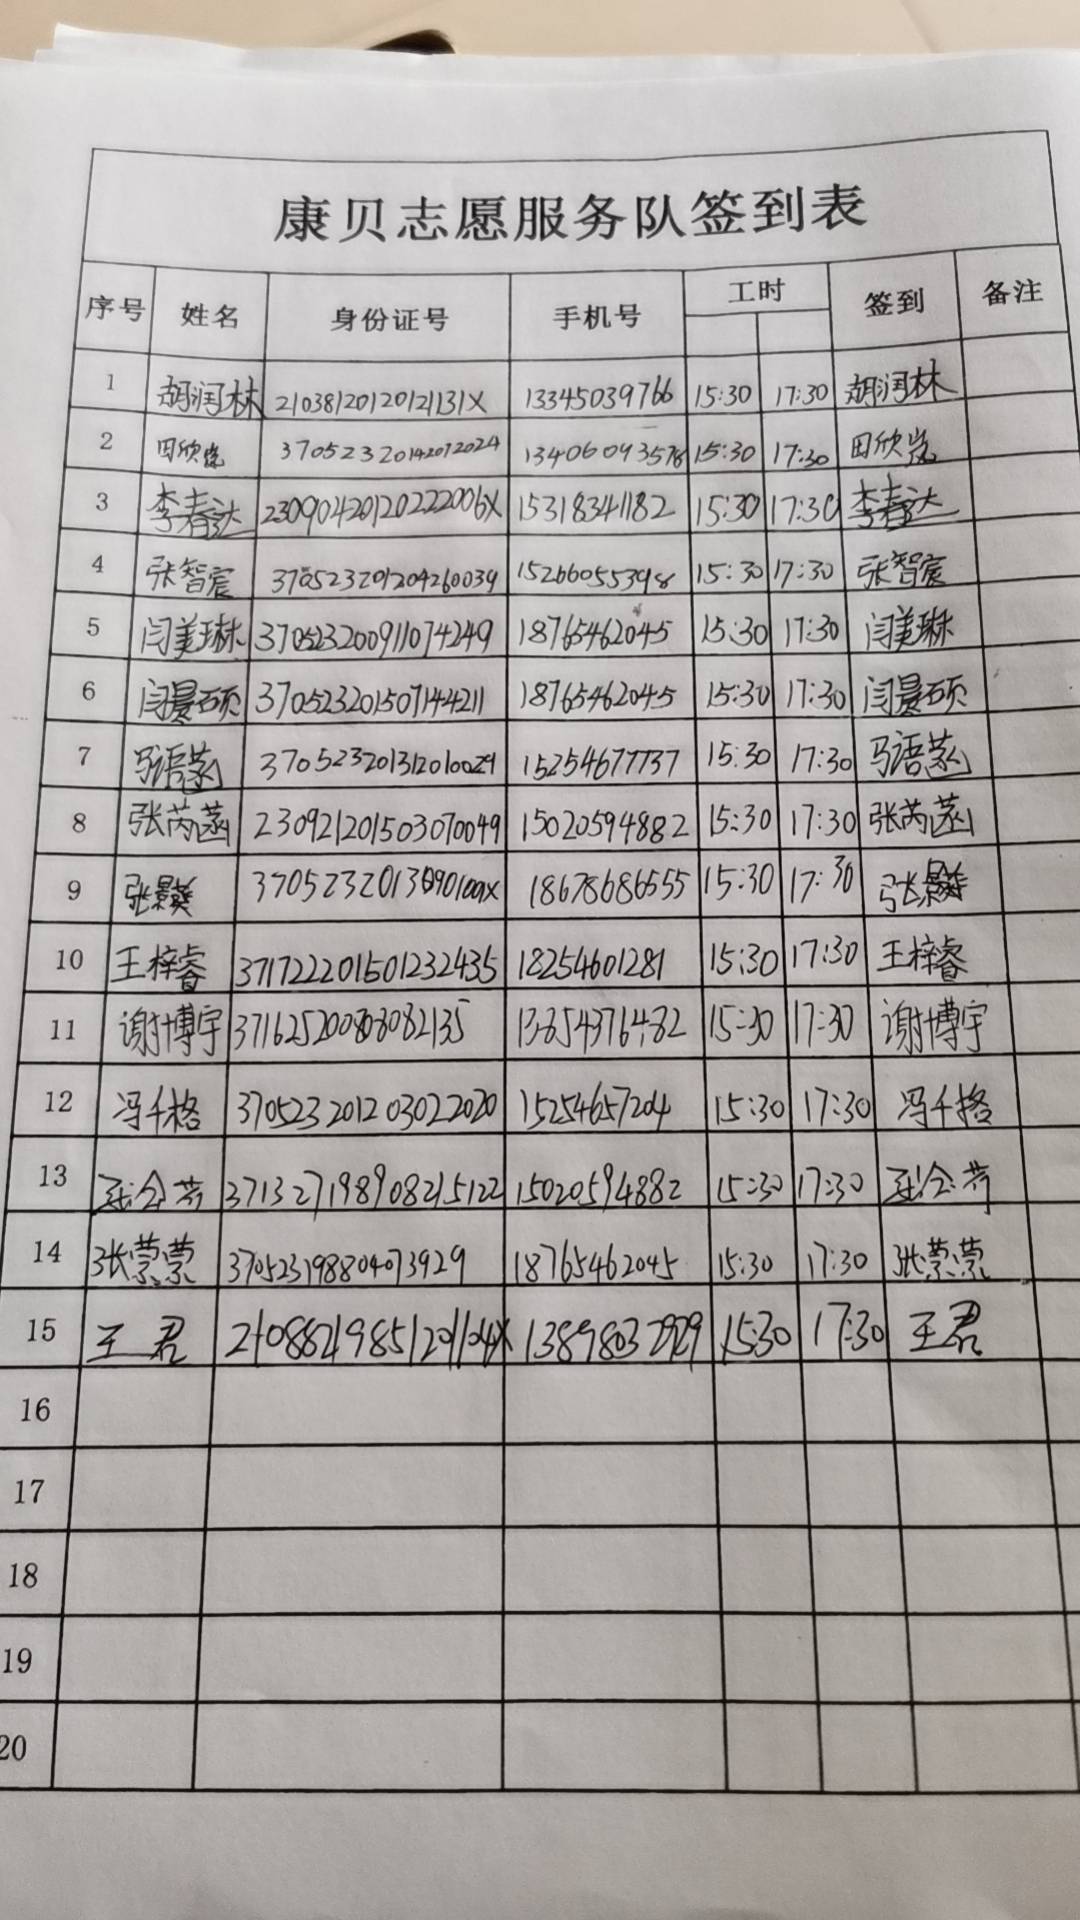 康贝志愿服务队签到表
序号 姓名 身份证号 手机号 工时 签到 备注
1 胡润林 21038120120121131X 13345039766 15:30 17:30 胡润林
2 田欣岚 37052320142072024 13406093576 15:30 17:30 田欣岚
3 李春达 23090420120222006X 15318341182 15:30 17:30 李春达
4 张智宸 370523201204260039 15266055398 15:30 17:30 张智宸
5 闫美琳 370523200911074249 18765462045 15:30 17:30 闫美琳
6 闫景硕 370523201507144211 18765462045 15:30 17:30 闫景硕
7 马语菡 370523201312010024 15254677737 15:30 17:30 马语菡
8 张芮菡 230921201503070049 15020594882 15:30 17:30 张芮菡
9 18678686555 15:30 17:30
10 王梓睿 371722201501232435 18254601281 15:30 17:30 王梓睿
11 谢博宇 371625200808082135 13854376482 15:30 17:30 谢博宇
12 冯千格 370523201203022020 15254657204 15:30 17:30 冯千格
13 371327198908215122 15020594882 15:30 17:30
14 张蒙蒙 370523198804073929 18765462045 15:30 17:30 张蒙蒙
15 王君 21088219851201104X 13898032929 15:30 17:30 王君
16
17
18
19
20